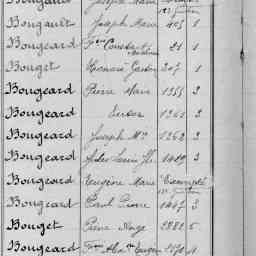 Bougault Joseph Marie
Bougault Joseph Marie 405 1
Bougeard Fois Constant 21 1
Bouget Honoré Gaston 207 1
Bougeard Pierre Marie 1355 3
Bougeard 1361 3
Bougeard Joseph Mie 1362 3
Bougeard Louis 1419 3
Bougeard Eugène Marie Exempté
Bougeard Paul Pierre 1447 3
Bouget Pierre Ange 2881 5
Bougeard Fois Alex Eugène 2570 4